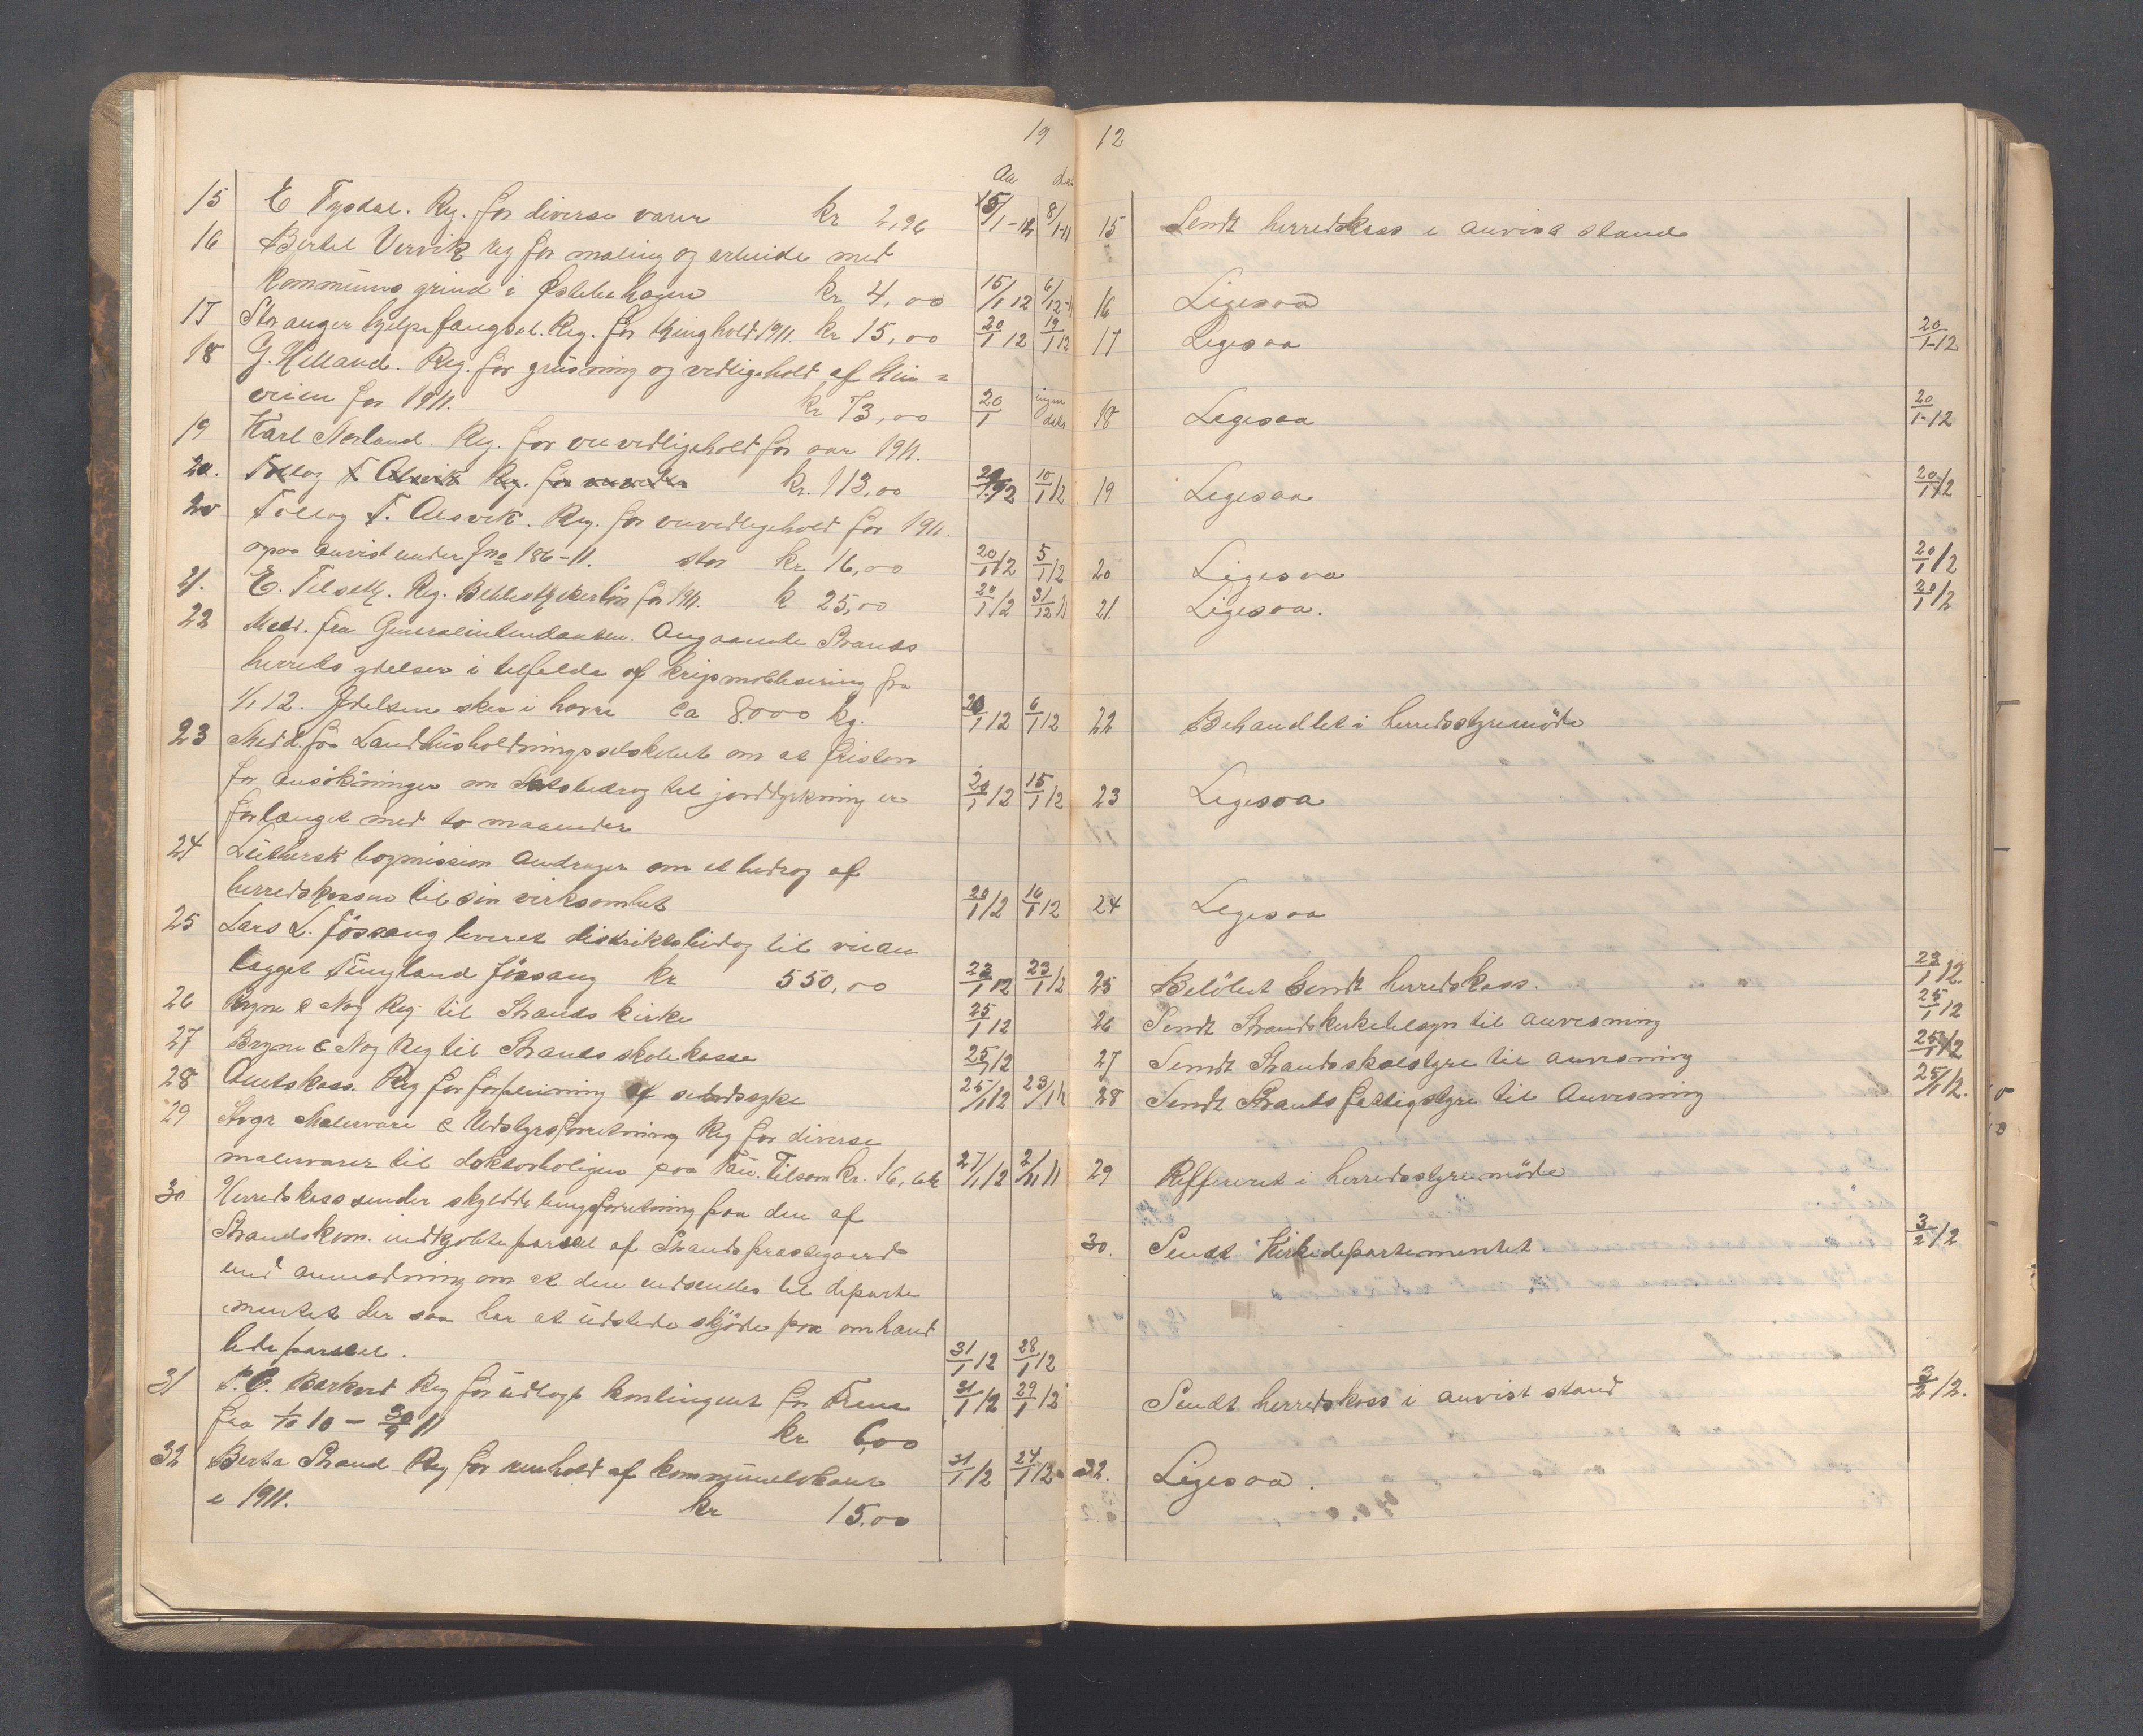 19
An dat
15 E Tysdal. Reg. for diverse varer kr 2,26 15/1-12 8/1-11
16 Bertel Vervik reg for maling og arbeide med
kommunens grind i Østebøhagen kr 4,00 15/1 12 6/12-11
17 Stavanger hjelpefængsel. Reg. for thinghold 1911. kr 15,00 20/1 12 19/1 12
18 G. Helland. Reg. for grusning og vedligehold af
veien for 1911. kr 73,00 20/1 ingen dato
19 Karl Nerland. Reg. for veivedligehold for aar 1911.
20. Tollag T Alsvik Reg. for kr. 113,00 20/1 12 10/1 12
20 Tollag T. Alsvik. Reg. for veivedligehold for 1911.
ogsaa anvist under Jno 186-11. stor kr 16,00 20/1 12 5/1 12
21. E. Tilseth. Reg. Bibliothekerløn for 1911. kr 25,00 20/1 12 31/12 11
22 Medd. fra Generalintendanten. Angaaende Strands
herreds ydelser i tilfelde af krigsmobilisering fra
1/1 12. Ydelsen sker i havre ca 8.000 kg. 20/1 12 6/1 12
23 Medd. fra Landhusholdningsselskabet om at fristen
for ansøkninger om Statsbidrag til jorddyrkning er 20/1 12 15/1 12
forlænget med to maaneder
24 Luthersk bogmission Andrager om et bidrag af
herredskassen til sin virksomhet 20/1 12 16/1 12
25 Lars L. Jøssang leveret distriktsbidrag til veian
lægget Tungland Jøssang kr 550,00 23/1 12 23/1 12
26 Bryne & Nag Reg til Strands kirke 25/1 12
27 Bryne & Nag Reg til Strands skolekasse 25/1 12
28 Amtskass. Reg for forpleining af sindssyke 25/1 12 23/1 12
29 Stvgr Malervare & Udstyrsforretning Reg for diverse
malervarer til doktorboligen paa Tau. Tilsam kr. 16,66 27/1 12 2/11 11
30 Herredskass sender skylddelingsforretning paa den af
Strandskom. indkjøbte parsel af Strands præstegaard
med anmodning om at den indsendes til departe
mentet der saa har at udstede skjøde paa omhand
lede parsel. 31/1 12 28/1 12
31 Barkved Reg for udlagt kontingent for Trena 31/1 12 29/1 12
fra 1/10 10 – 30/9 11 kr 6,00
32 Berta Strand Reg for renhold af kommunelokale 31/1 12 24/1 12
i 1911. kr 15.00
12
15 Sendt herredskass i anvist stand
16 Ligesaa
17 Ligesaa 20/1-12
18 Ligesaa 20/1-12
19 Ligesaa 20/1 12
20 Ligesaa 20/1 12
21. Ligesaa. 20/1 12
22 Behandlet i herredsstyremøde
23 Ligesaa
24 Ligesaa
25 Beløbet Sendt herredskass. 23/1 12.
26 Sendt Strands kirketilsyn til anvisning 25/1 12
27 Sendt Strands skolestyre til anvisning 25/1 12
28 Sendt Strands fattigstyre til Anvisning 25/1 12.
29 Refferert i herredsstyremøde
30. Sendt Kirkedepartementet 3/2 12
Sendt herredskass i anvist stand 3/2 12.
32. Ligesaa.